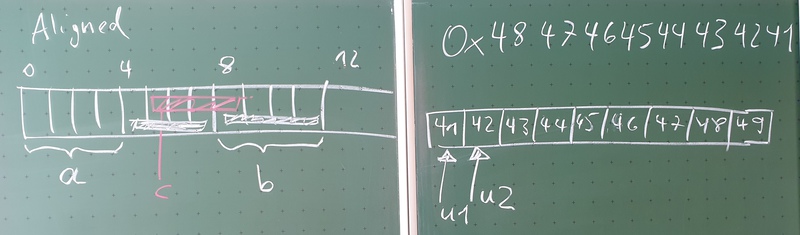 Aligned
0 4 8 12
a c b
0x 48 47 46 45 44 43 42 41
41 42 43 44 45 46 47 48 49
u1 u2